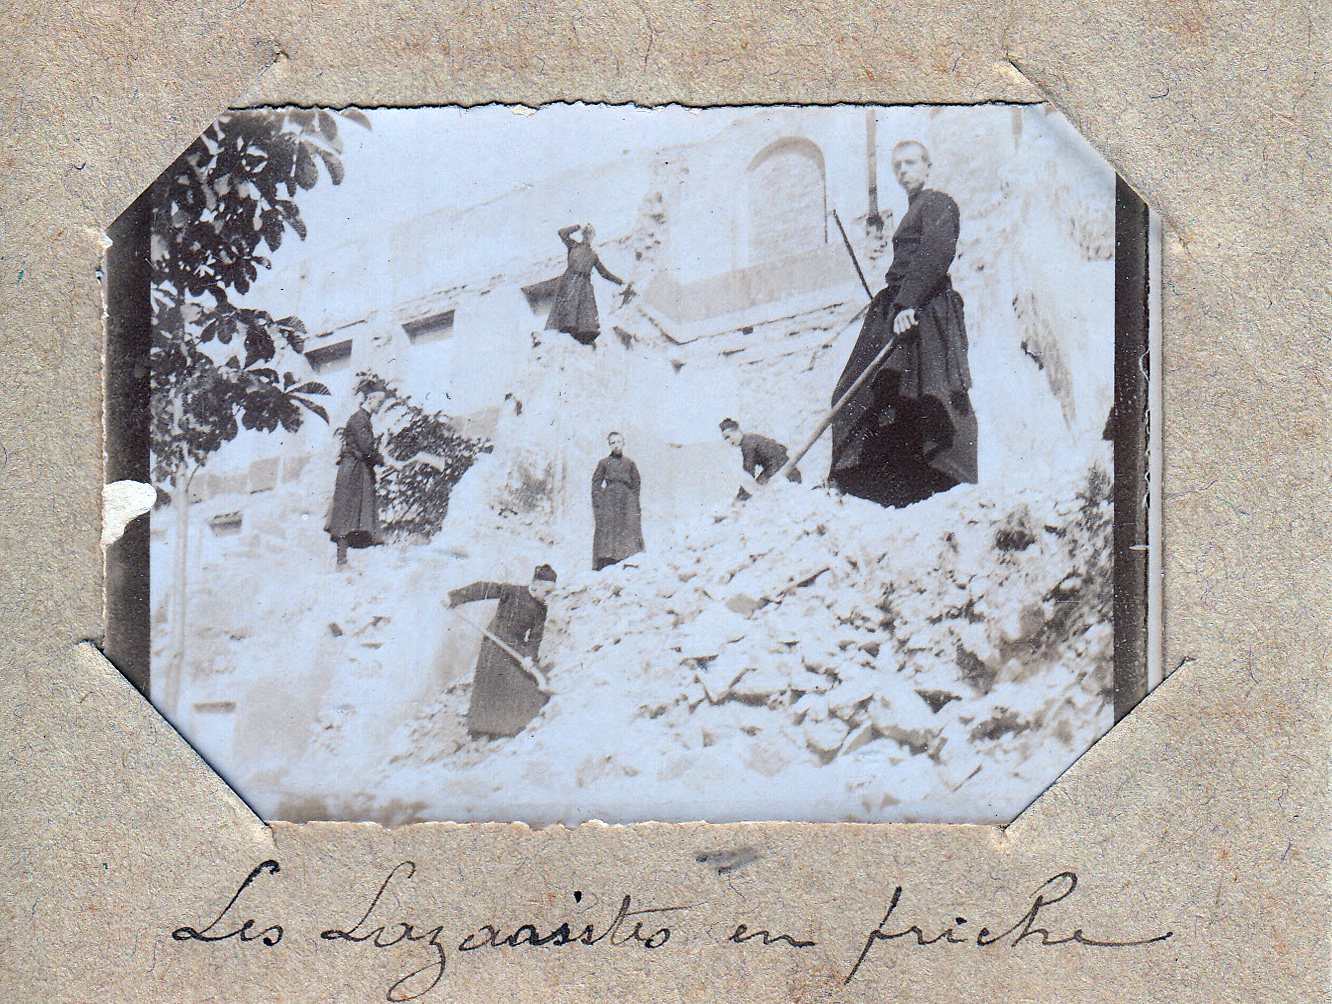 Les Lazaristes en friche